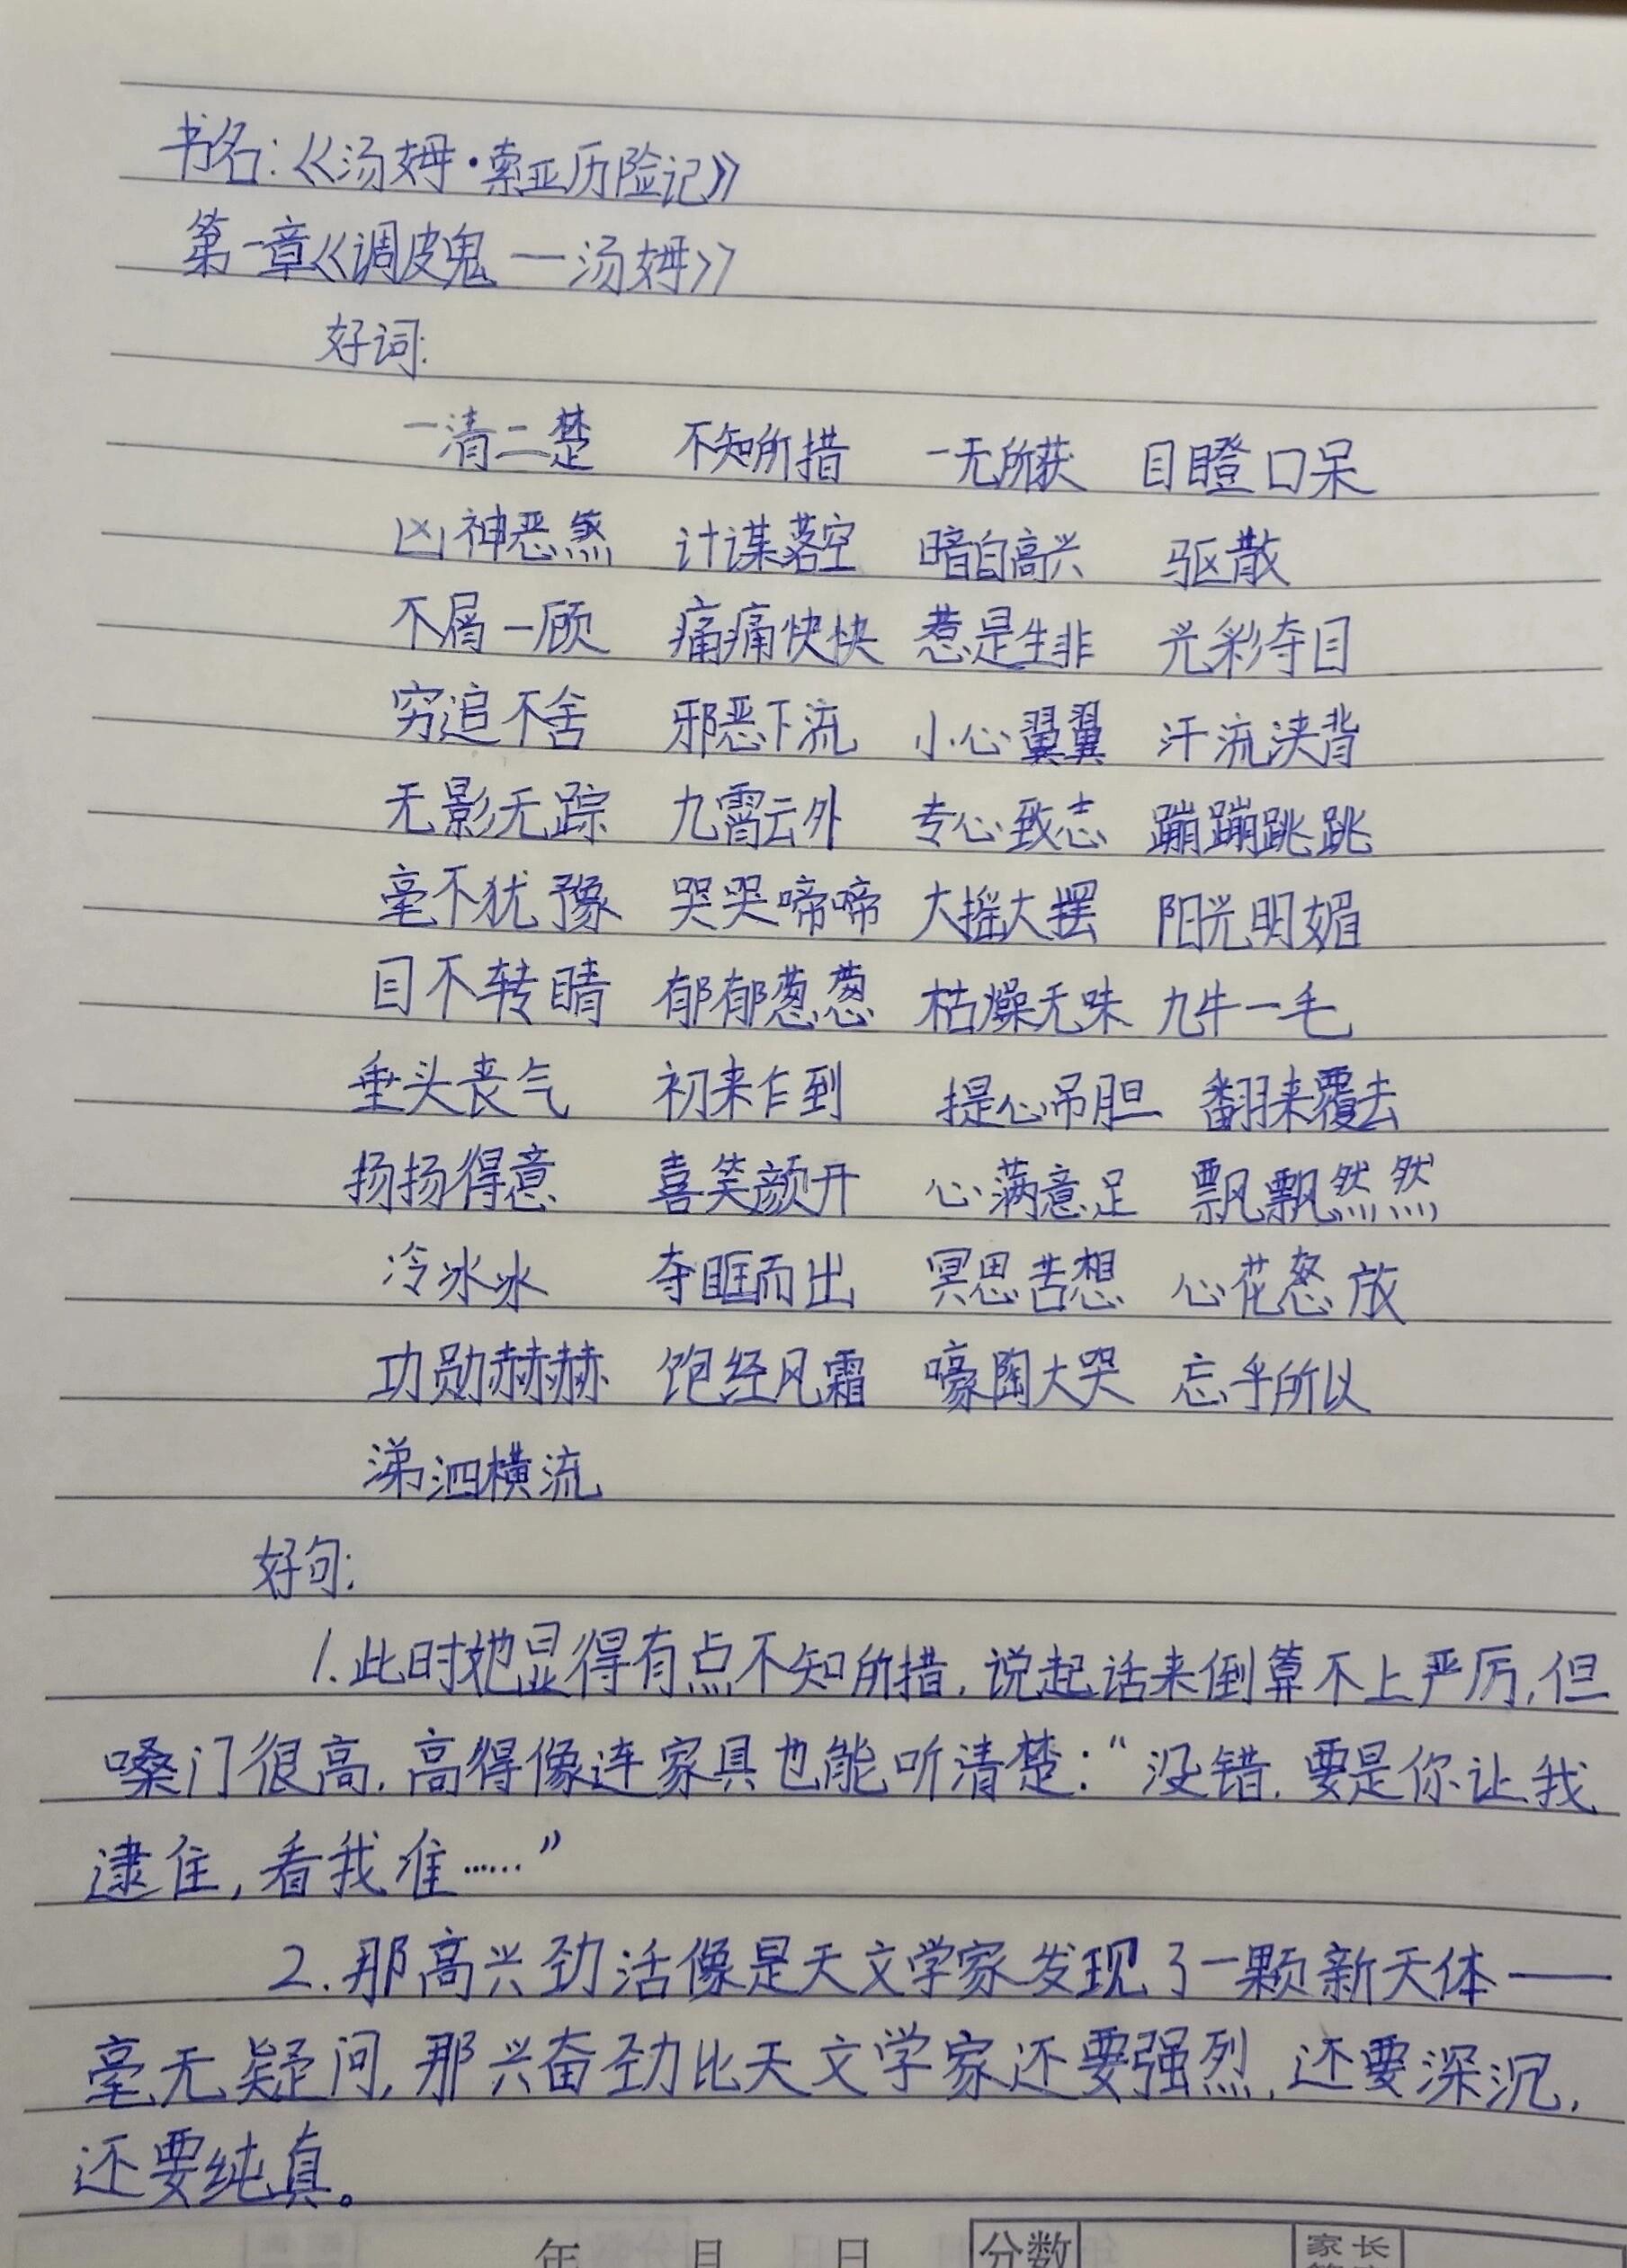 书名:《汤姆·索亚历险记》
第一章《调皮鬼 — 汤姆》
好词:
一清二楚 不知所措 一无所获 目瞪口呆
凶神恶煞 计谋落空 暗自高兴 驱散
不屑一顾 痛痛快快 惹是生非 光彩夺目
穷追不舍 邪恶下流 小心翼翼 汗流浃背
无影无踪 九霄云外 专心致志 蹦蹦跳跳
毫不犹豫 哭哭啼啼 大摇大摆 阳光明媚
目不转睛 郁郁葱葱 枯燥无味 九牛一毛
垂头丧气 初来乍到 提心吊胆 翻来覆去
扬扬得意 喜笑颜开 心满意足 飘飘然然
冷冰冰 夺眶而出 冥思苦想 心花怒放
功勋赫赫 饱经风霜 嚎陶大哭 忘乎所以
涕泗横流
好句:
1.此时她显得有点不知所措,说起话来倒算不上严厉,但
嗓门很高,高得像连家具也能听清楚:“没错,要是你让我
逮住,看我准……”
2.那高兴劲活像是天文学家发现了一颗新天体——
毫无疑问,那兴奋劲比天文学家还要强烈,还要深沉,
还要纯真。
年 月 日 分数 家长